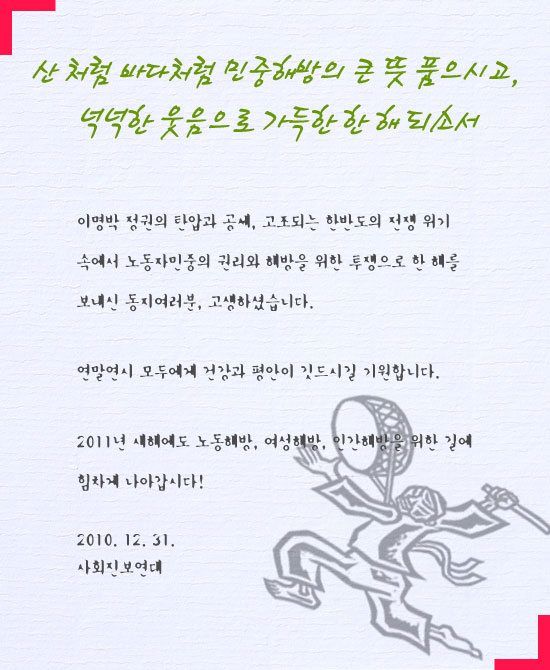 산처럼 바다처럼 민중해방의 큰 뜻 품으시고,
넉넉한 웃음으로 가득한 한 해 되소서
이명박 정권의 탄압과 공세, 고조되는 한반도의 전쟁 위기
속에서 노동자민중의 권리와 해방을 위한 투쟁으로 한 해를
보내신 동지여러분, 고생하셨습니다.
연말연시 모두에게 건강과 평안이 깃드시길 기원합니다.
2011년 새해에도 노동해방, 여성해방, 인간해방을 위한 길에
힘차게 나아갑시다!
2010. 12. 31.
사회진보연대